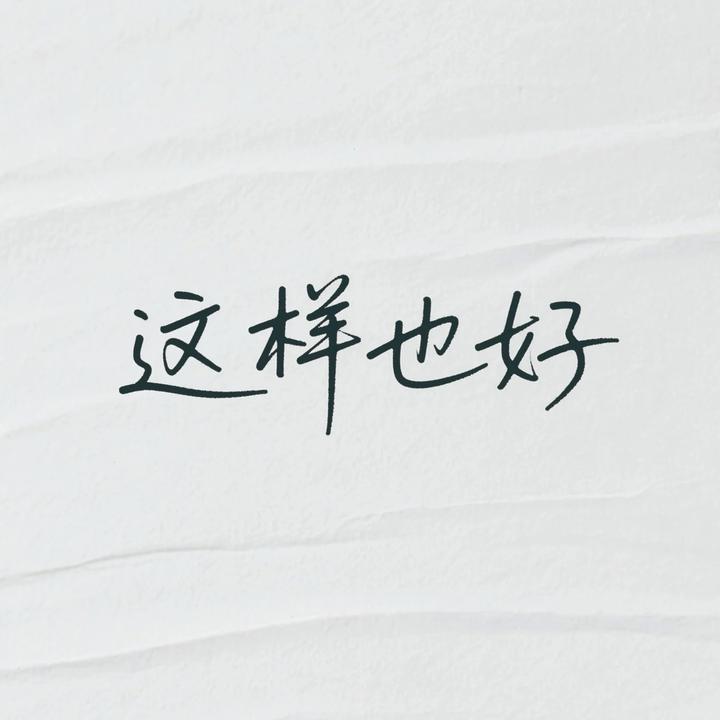 这样也好